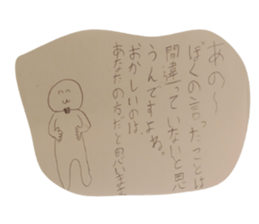 あの〜
ぼくの言ったことは
間違っていないと思
うんですよね。
おかしいのは、
あなたの方だと思いますよ